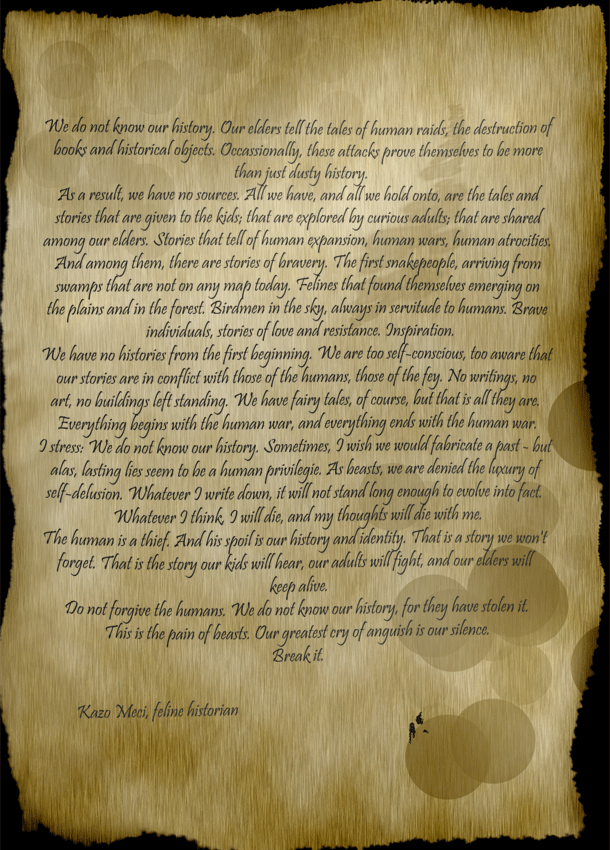 We do not know our history. Our elders tell the tales of human raids, the destruction of
books and historical objects. Occassionally, these attacks prove themselves to be more
than just dusty history.
As a result, we have no sources. All we have, and all we hold onto, are the tales and
stories that are given to the kids; that are explored by curious adults; that are shared
among our elders. Stories that tell of human expansion, human wars, human atrocities.
And among them, there are stories of bravery. The first snakepeople, arriving from
swamps that are not on any map today. Felines that found themselves emerging on
the plains and in the forest. Birdmen in the sky, always in servitude to humans. Brave
individuals, stories of love and resistance. Inspiration.
We have no histories from the first beginning. We are too self-conscious, too aware that
our stories are in conflict with those of the humans, those of the fey. No writings, no
art, no buildings left standing. We have fairy tales, of course, but that is all they are.
Everything begins with the human war, and everything ends with the human war.
I stress: We do not know our history. Sometimes, I wish we would fabricate a past - but
alas, lasting lies seem to be a human privilegie. As beasts, we are denied the luxury of
self-delusion. Whatever I write down, it will not stand long enough to evolve into fact.
Whatever I think, I will die, and my thoughts will die with me.
The human is a thief. And his spoil is our history and identity. That is a story we won't
forget. That is the story our kids will hear, our adults will fight, and our elders will
keep alive.
Do not forgive the humans. We do not know our history, for they have stolen it.
This is the pain of beasts. Our greatest cry of anguish is our silence.
Break it.
Kazo Meci, feline historian